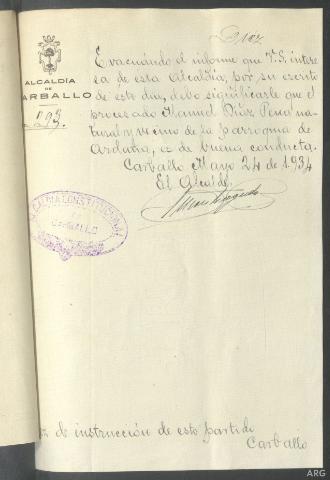 ALCALDÍA
DE
CARBALLO
Evacuando el informe que V. S. intere
sa de esta Alcaldía, por su escrito
de este día, debo significarle que el
procesado Manuel Díaz Pena na-
tural y vecino de la parroquia de
Ardaña, es de buena conducta.
Carballo Mayo 24 de 1934
El Alcalde,
ALCALDIA CONSTITUCIONAL
DE
CARBALLO
de instrucción de este partido
Carballo
ARG